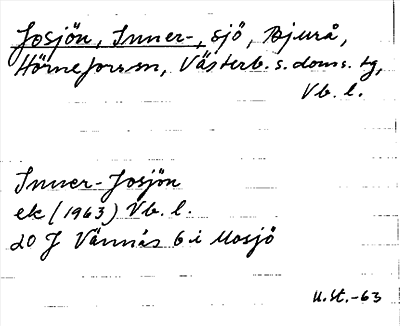 Josjön, Inner-, sjö, Bjurå,
Hörnefors sn, Västerb. s. doms. tg,
Vb. l.
Inner-Josjön
ek (1963) Vb. l.
20 J Vännäs 6 i Mosjö
U. St. -63